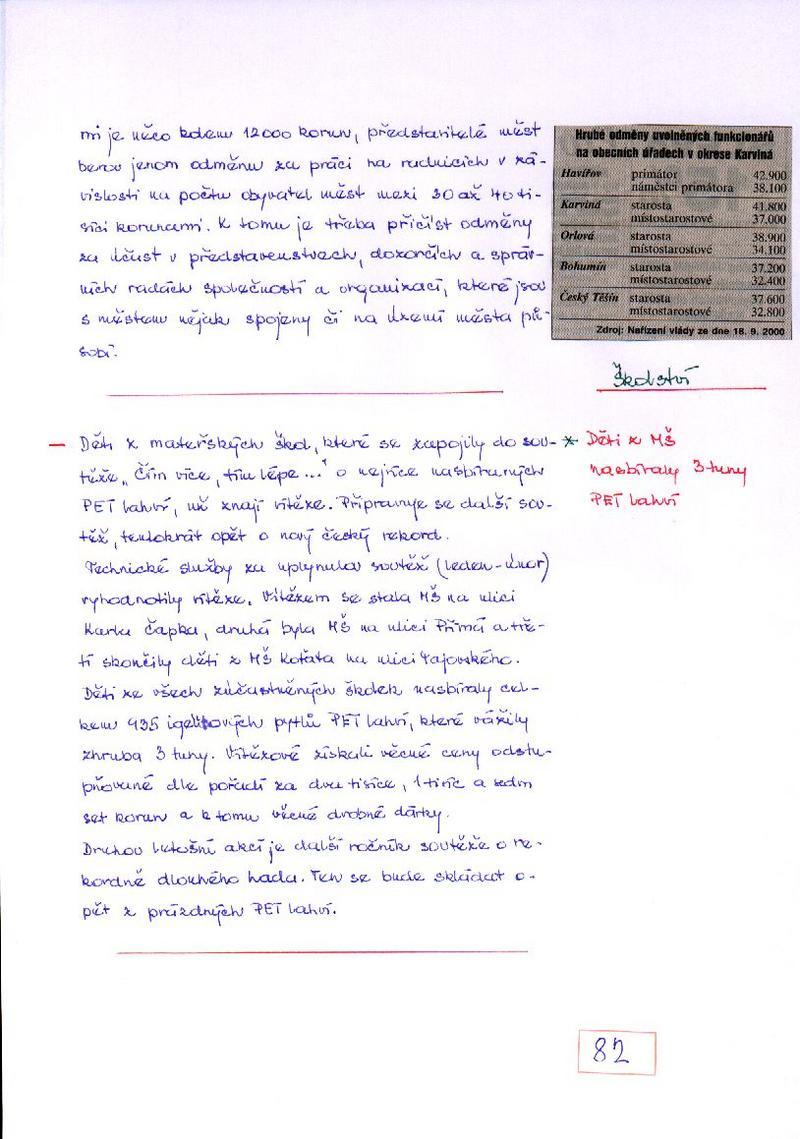 mi je něco kolem 12000 korun, představitelé měst
berou jenom odměnu za práci na radnicích v zá-
vislosti na počtu obyvatel měst mezi 30 až 40 ti-
síci korunami. K tomu je třeba přičíst odměny
za účast v představenstvech, dozorčích a správ-
ních radách společností a organizací, které jsou
s městem nějak spojeny či na území města pů-
sobí.
Hrubé odměny uvolněných funkcionářů
na obecních úřadech v okrese Karviná
Havířov primátor 42.900
náměstci primátora 38.100
Karviná starosta 41.800
místostarostové 37.000
Orlová starosta 38.900
místostarostové 34.100
Bohumín starosta 37.200
místostarostové 32.400
Český Těšín starosta 37.600
místostarostové 32.800
Zdroj: Nařízení vlády ze dne 18. 9. 2000
Školství
– Děti z mateřských škol, které se zapojily do sou-
těže „Čím více, tím lépe..." o nejvíce nasbíraných
PET lahví, už znají vítěze. Připravuje se další sou-
těž, tentokrát opět o nový český rekord.
Technické služby za uplynulou soutěž (leden-únor)
vyhodnotily vítěze. Vítězem se stala MŠ na ulici
Karla Čapka, druhá byla MŠ na ulici Přímá a tře-
tí skončily děti z MŠ Koťata na ulici Tajovského.
Děti ze všech zúčastněných školek nasbíraly cel-
kem 935 igelitových pytlů PET lahví, které vážily
zhruba 3 tuny. Vítězové získali věcné ceny odstu-
pňované dle pořadí za dva tisíce, 1 tisíc a sedm
set korun a k tomu věcné drobné dárky.
Druhou letošní akcí je další ročník soutěže o re-
kordně dlouhého hada. Ten se bude skládat o-
pět z prázdných PET lahví.
* Děti z MŠ
nasbíraly 3 tuny
PET lahví
82